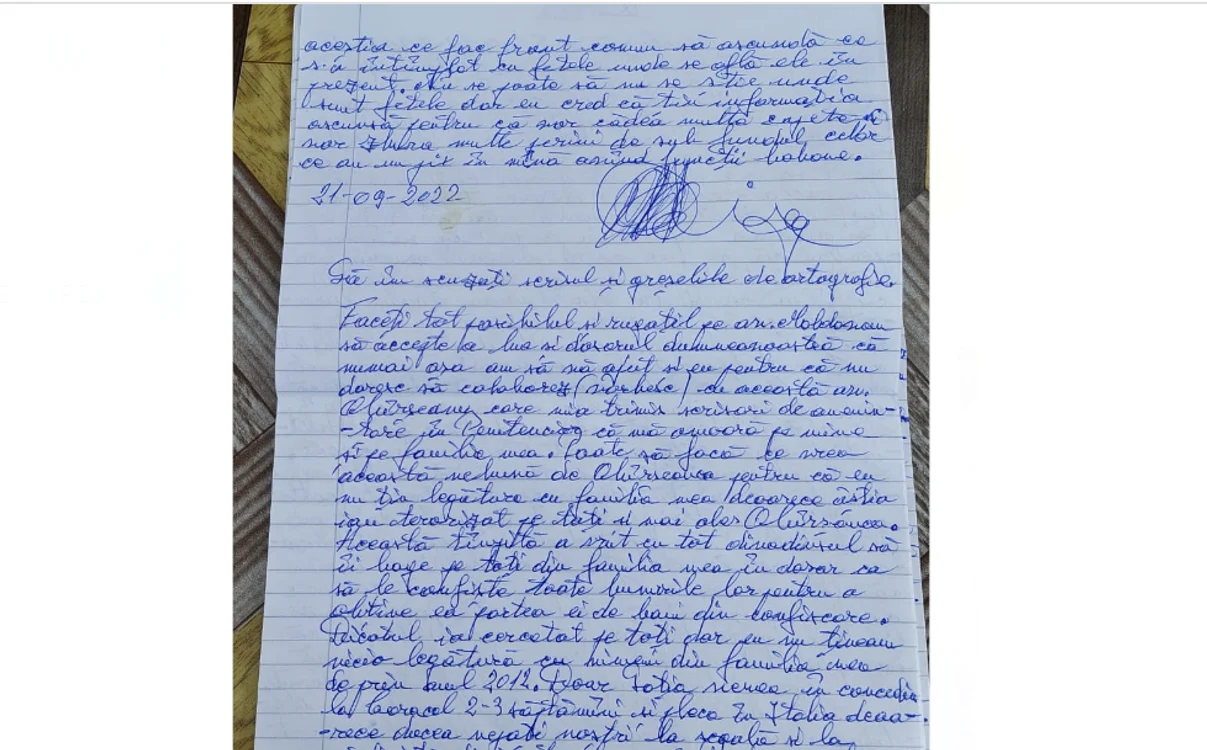 acestia ce fac front comun să ascundă ce
s-a întîmplat cu fetele unde se află ele în
prezent. Nu se poate să nu se stie unde
sunt fetele dar eu cred că tin informatia
ascunsă pentru că vor cădea multe capete si
vor zbura multe perini de sub fundul celor
ce au un pix în mînă avînd functii babane.
21-09-2022
Să îm scuzati scrisul si greselile de ortografie.
Faceti tot posibilul si rugatil pe av. Moldovean
să accepte a lua si dosarul dumneavoastră că
numai asa am să vă ajut si eu pentru că nu
doresc să colaborez (vorbesc) cu această av.
care mia trimis scrisori de amenin-
-tare în Penitenciar că mă omoară pe mine
si pe familia mea. Poate să facă ce vrea
această nebună de pentru că eu
nu tin legătura cu familia mea deoarece ăstia
iau terorizat pe toti si mai ales
Această tîmpită a vrut cu tot dinadinsul să
îi bage pe toti din familia mea în dosar ca
să le confiște toate bunurile lor pentru a
obtine ea partea ei de bani din confiscare.
Diicotul ia cercetat pe toti dar eu nu tineam
nicio legătură cu nimeni din familia mea
de prin anul 2012. Doar sotia venea în concediu
la 2-3 săptămîni si pleca în Italia deoa-
-rece ducea nepati nostri la scoală si la